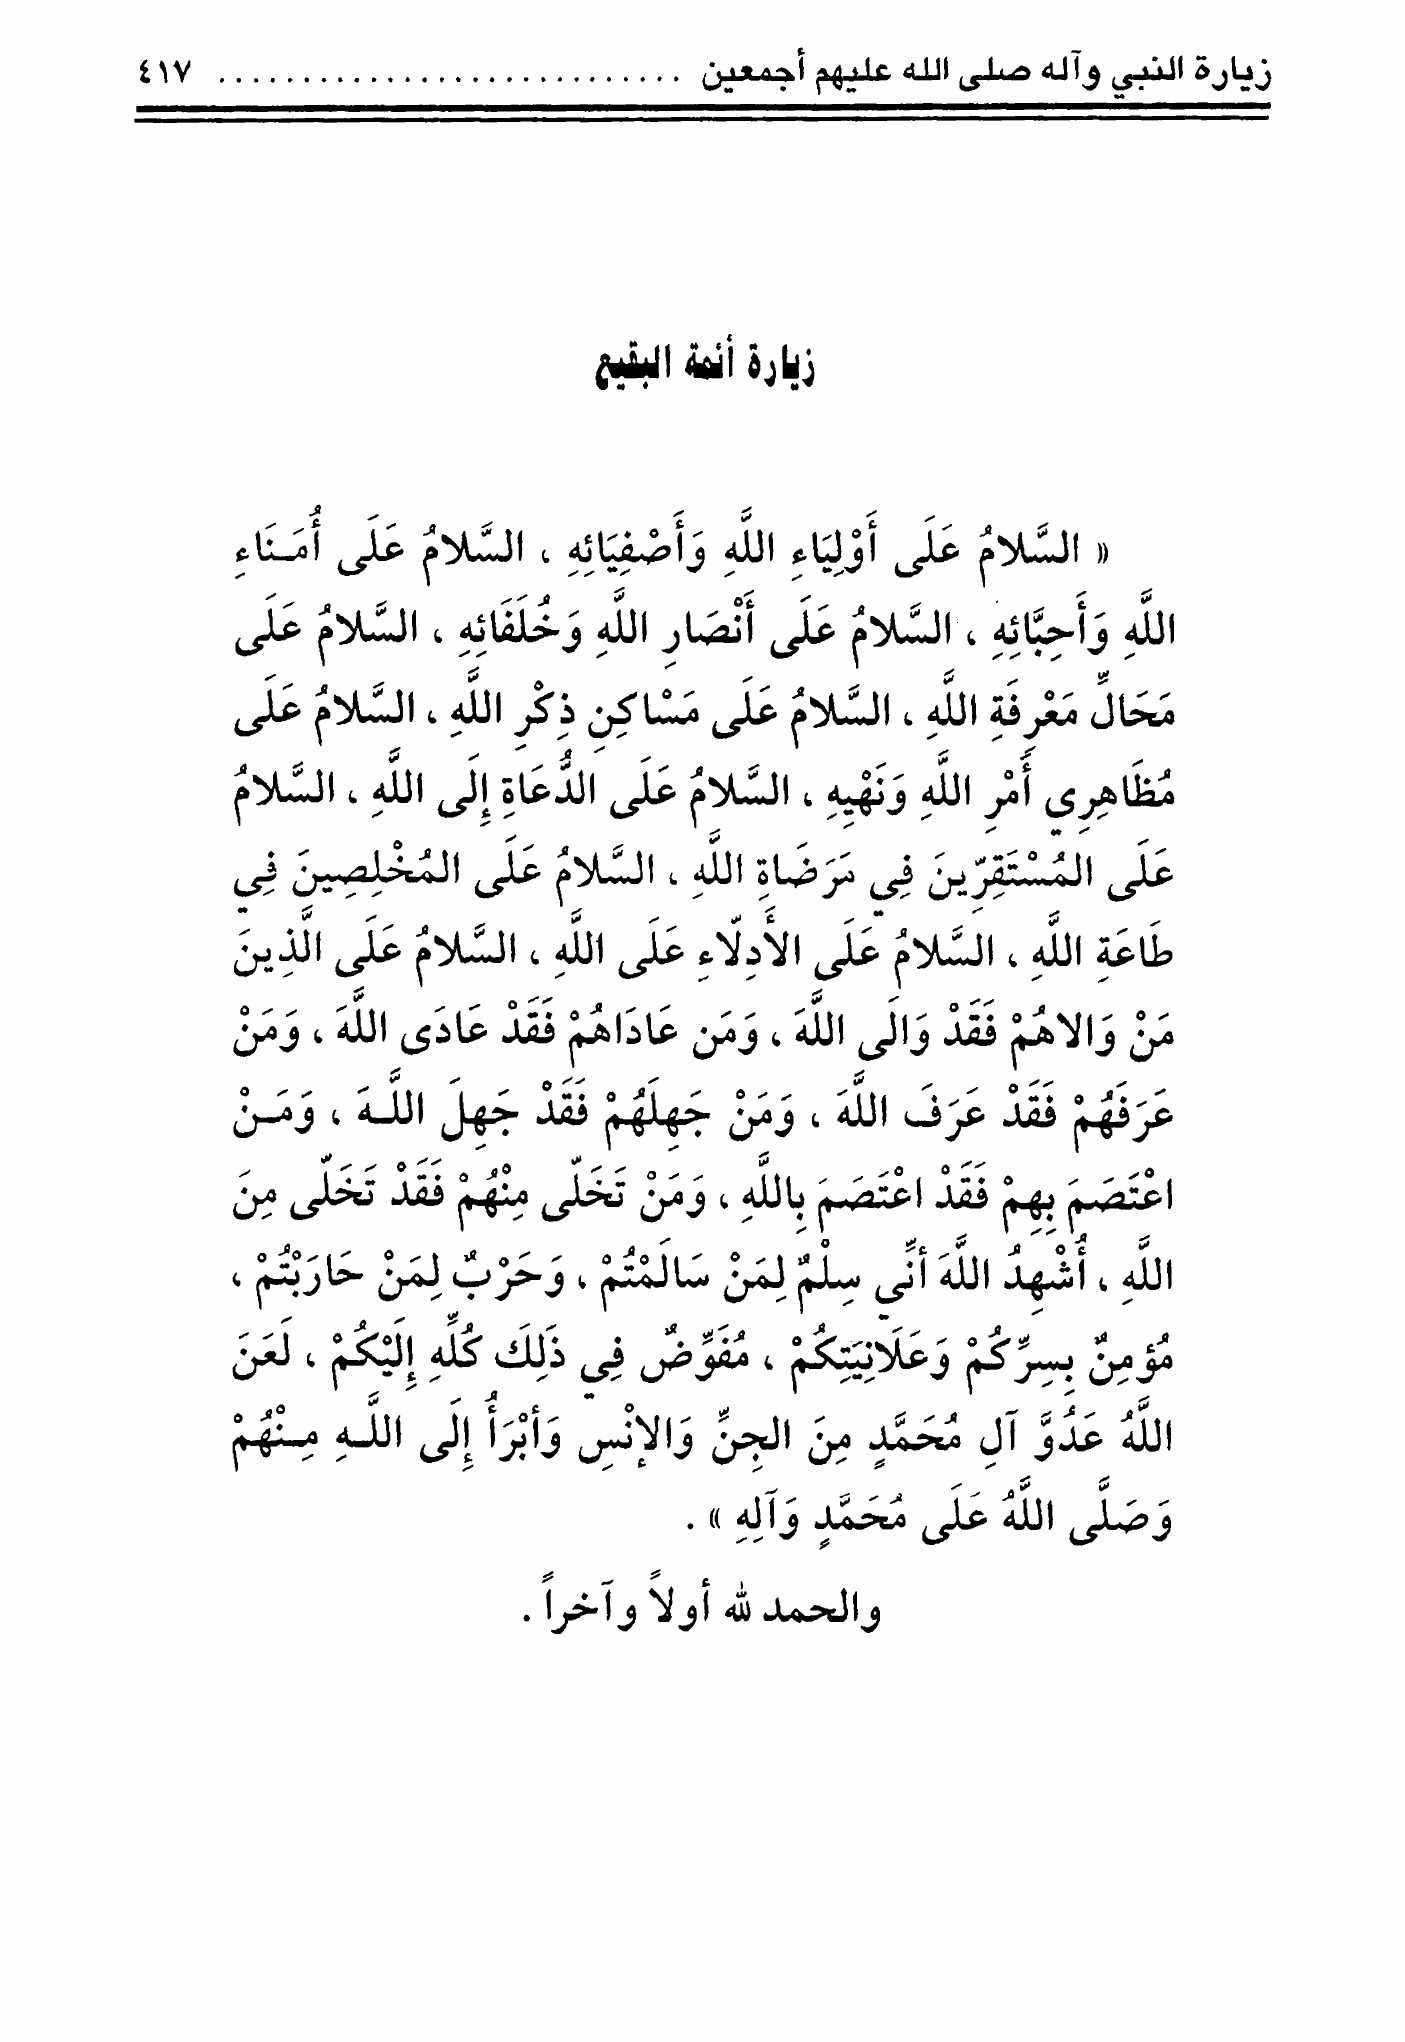 زيارة النبي وآله صلى الله عليهم أجمعين ............................ ٤١٧
زيارة أئمة البقيع
« السَّلامُ عَلَى أَوْلِيَاءِ اللَّهِ وَأَصْفِيَائِهِ ، السَّلامُ عَلَى أُمَـنَاءِ
اللَّهِ وَأَحِبَّائِهِ ، السَّلامُ عَلَى أَنْصَارِ اللَّهِ وَخُلَفَائِهِ ، السَّلامُ عَلَى
مَحَالِّ مَعْرِفَةِ اللَّهِ ، السَّلامُ عَلَى مَسْاكِنِ ذِكْرِ اللَّهِ ، السَّلامُ عَلَى
مُظَاهِرِي أَمْرِ اللَّهِ وَنَهْيِهِ ، السَّلامُ عَلَى الدُّعَاةِ إِلَى اللَّهِ ، السَّلامُ
عَلَى المُسْتَقِرِّينَ فِي مَرَضَاةِ اللَّهِ ، السَّلامُ عَلَى المُخْلِصِينَ فِي
طَاعَةِ اللَّهِ ، السَّلامُ عَلَى الأَدِلّاءِ عَلَى اللَّهِ ، السَّلامُ عَلَى الَّذِينَ
مَنْ وَالاهُمْ فَقَدْ وَالَى اللَّهَ ، وَمَن عَادَاهُمْ فَقَدْ عَادَى اللَّهَ ، وَمَنْ
عَرَفَهُمْ فَقَدْ عَرَفَ اللَّهَ ، وَمَنْ جَهِلَهُمْ فَقَدْ جَهِلَ اللَّـهَ ، وَمَـنْ
اعْتَصَمَ بِهِمْ فَقَدْ اعْتَصَمَ بِاللَّهِ ، وَمَنْ تَخَلّى مِنْهُمْ فَقَدْ تَخَلّى مِنَ
اللَّهِ ، أُشْهِدُ اللَّهَ أنِّي سِلْمٌ لِمَنْ سَالَمْتُمْ ، وَحَرْبٌ لِمَنْ حَارَبْتُمْ ،
مُؤمِنٌ بِسِرِّكُمْ وَعَلَانِيَتِكُمْ ، مُفَوِّضٌ فِي ذَلِكَ كُلِّهِ إِلَيْكُمْ ، لَعَنَ
اللَّهُ عَدُوَّ آلِ مُحَمَّدٍ مِنَ الجِنِّ وَالإنْسِ وَأَبْرَأُ إِلَى اللَّـهِ مِـنْهُمْ
وَصَلَّى اللَّهُ عَلَى مُحَمَّدٍ وَآلِهِ » .
والحمد لله أولاً وآخراً .